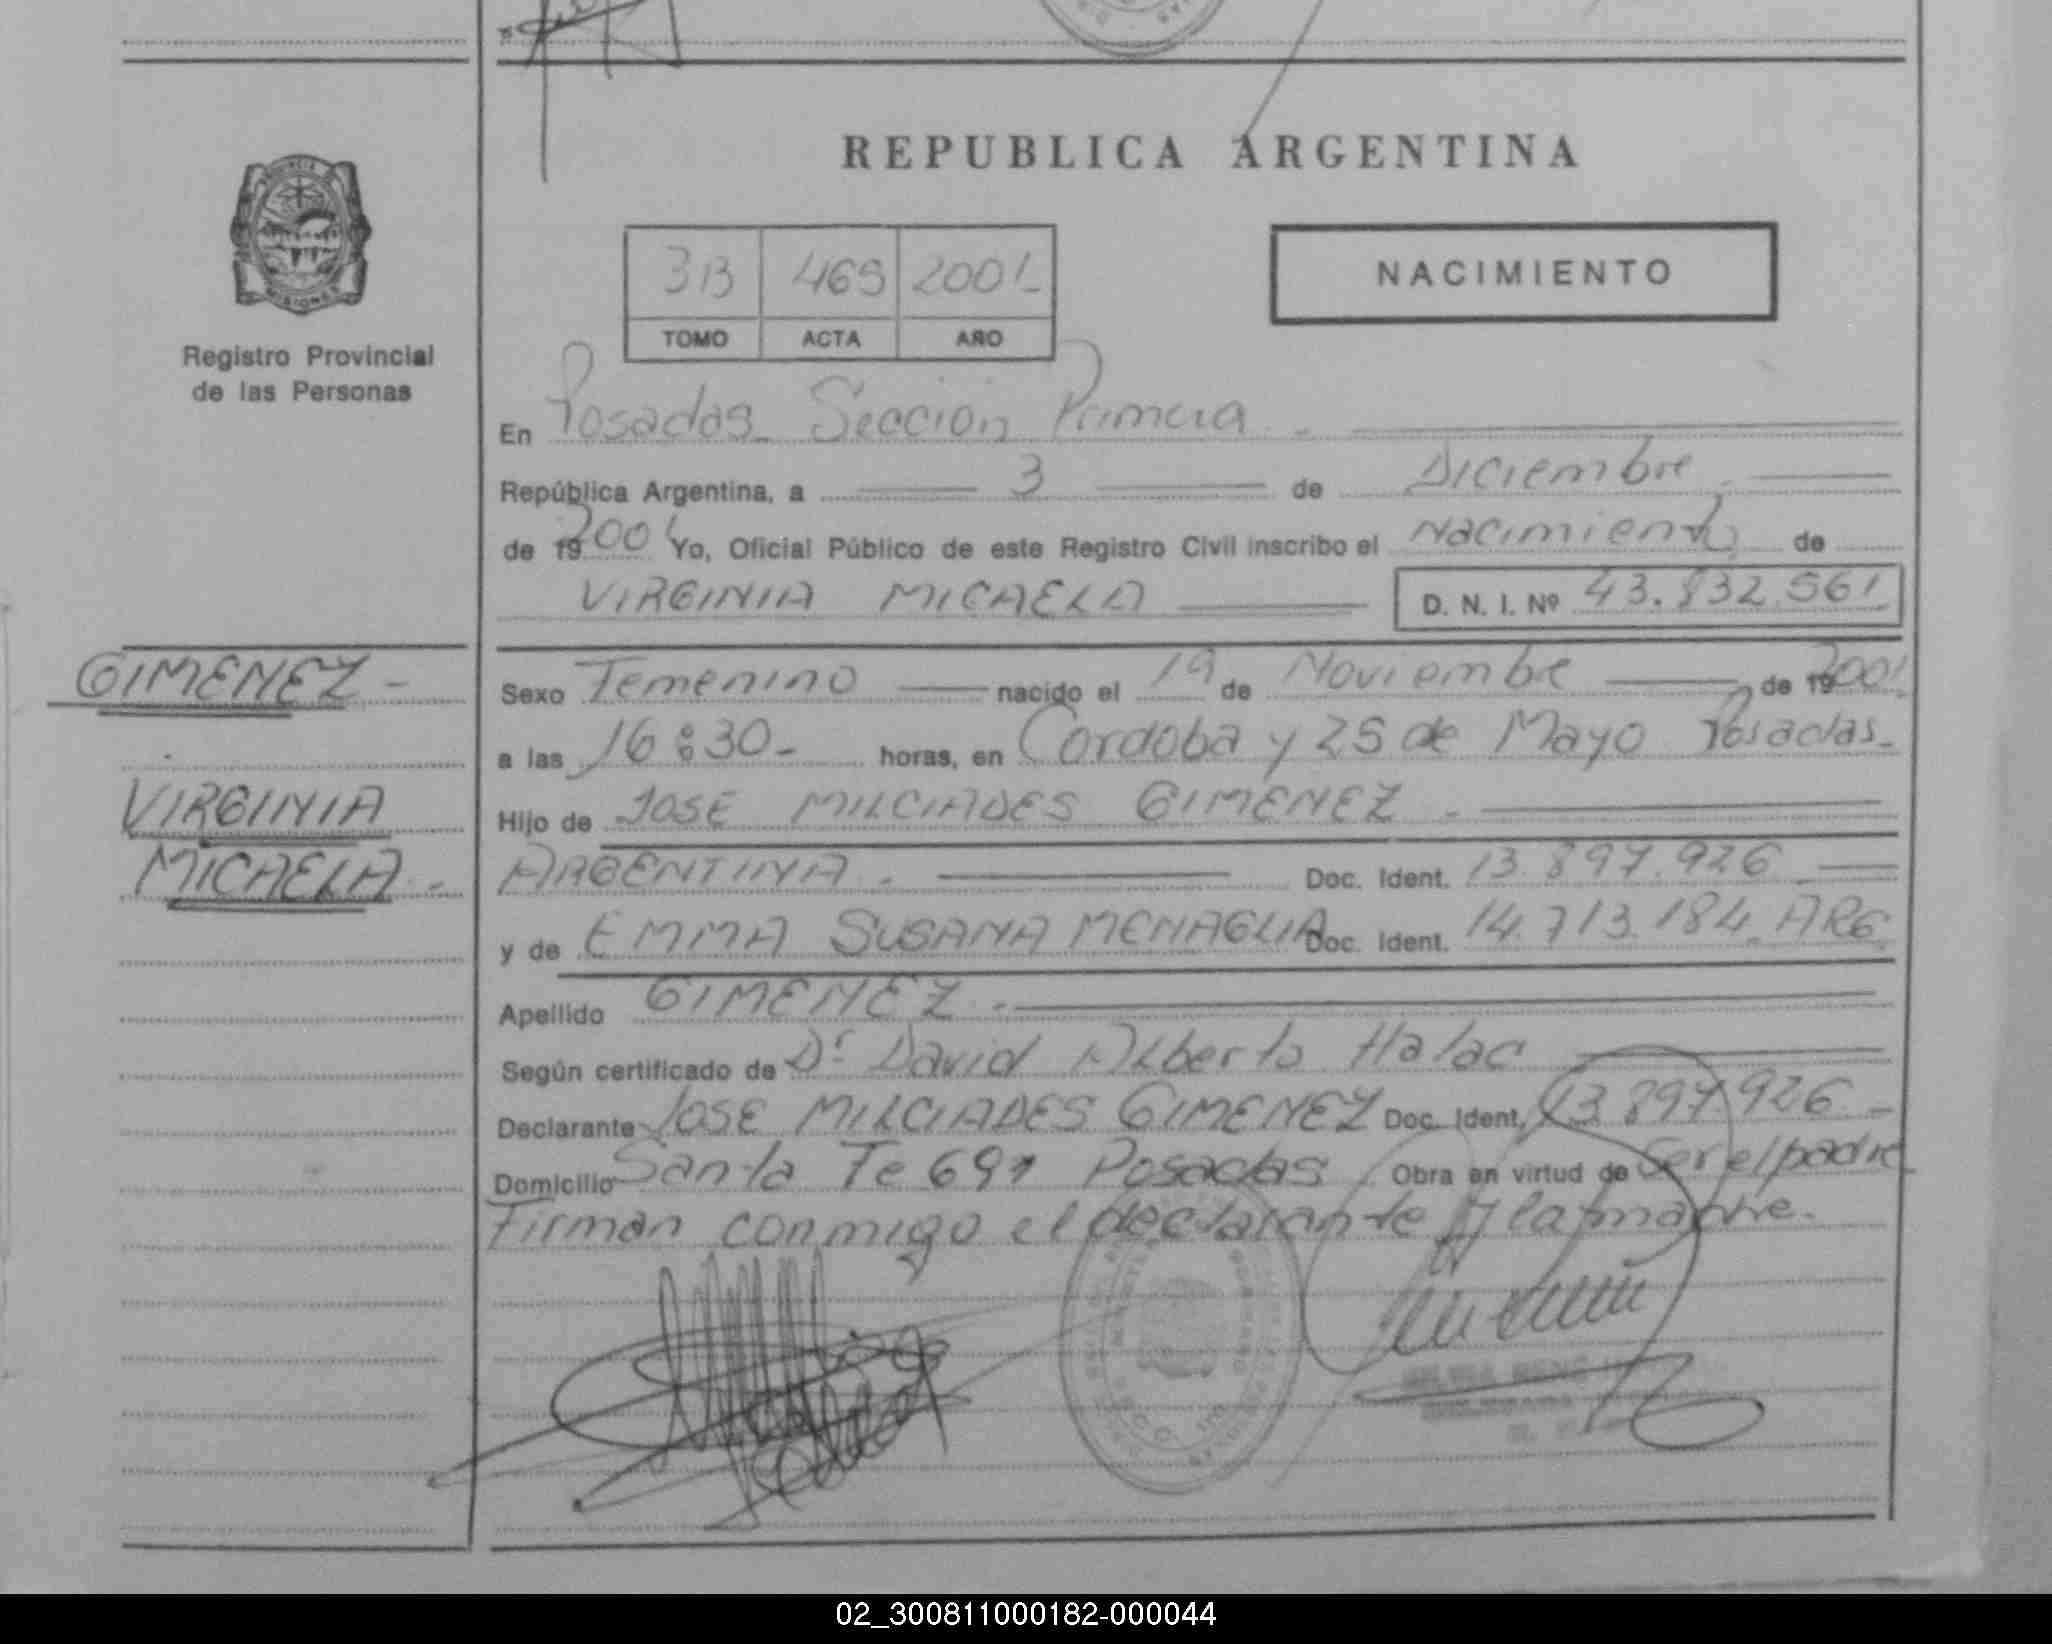 REPUBLICA ARGENTINA
NACIMIENTO
3B 469 2001
TOMO ACTA AÑO
MISIONES
Registro Provincial
de las Personas
En Posadas Seccion Primera
República Argentina, a 3 de Diciembre
de 19 2001 Yo, Oficial Público de este Registro Civil inscribo el Nacimiento de
VIRGINIA MICAELA D. N. I. Nº 43.832.561
GIMENEZ -
Sexo Femenino nacido el 19 de Noviembre de 19 2001
a las 16:30- horas, en Cordoba y 25 de Mayo Posadas-
VIRGINIA
Hijo de JOSE MILCIADES GIMENEZ -
MICAELA -
ARGENTINA - Doc. Ident. 13.897.926
y de EMMA SUSANA MENAGLIA Doc. Ident. 14.713.184 ARG.
Apellido GIMENEZ -
Según certificado de Dr David Alberto Halac
Declarante JOSE MILCIADES GIMENEZ Doc. Ident. 13.897.926 -
Domicilio Santa Fe 691 Posadas Obra en virtud de Ser el padre
Firman conmigo el declarante y la madre.
02_300811000182-000044